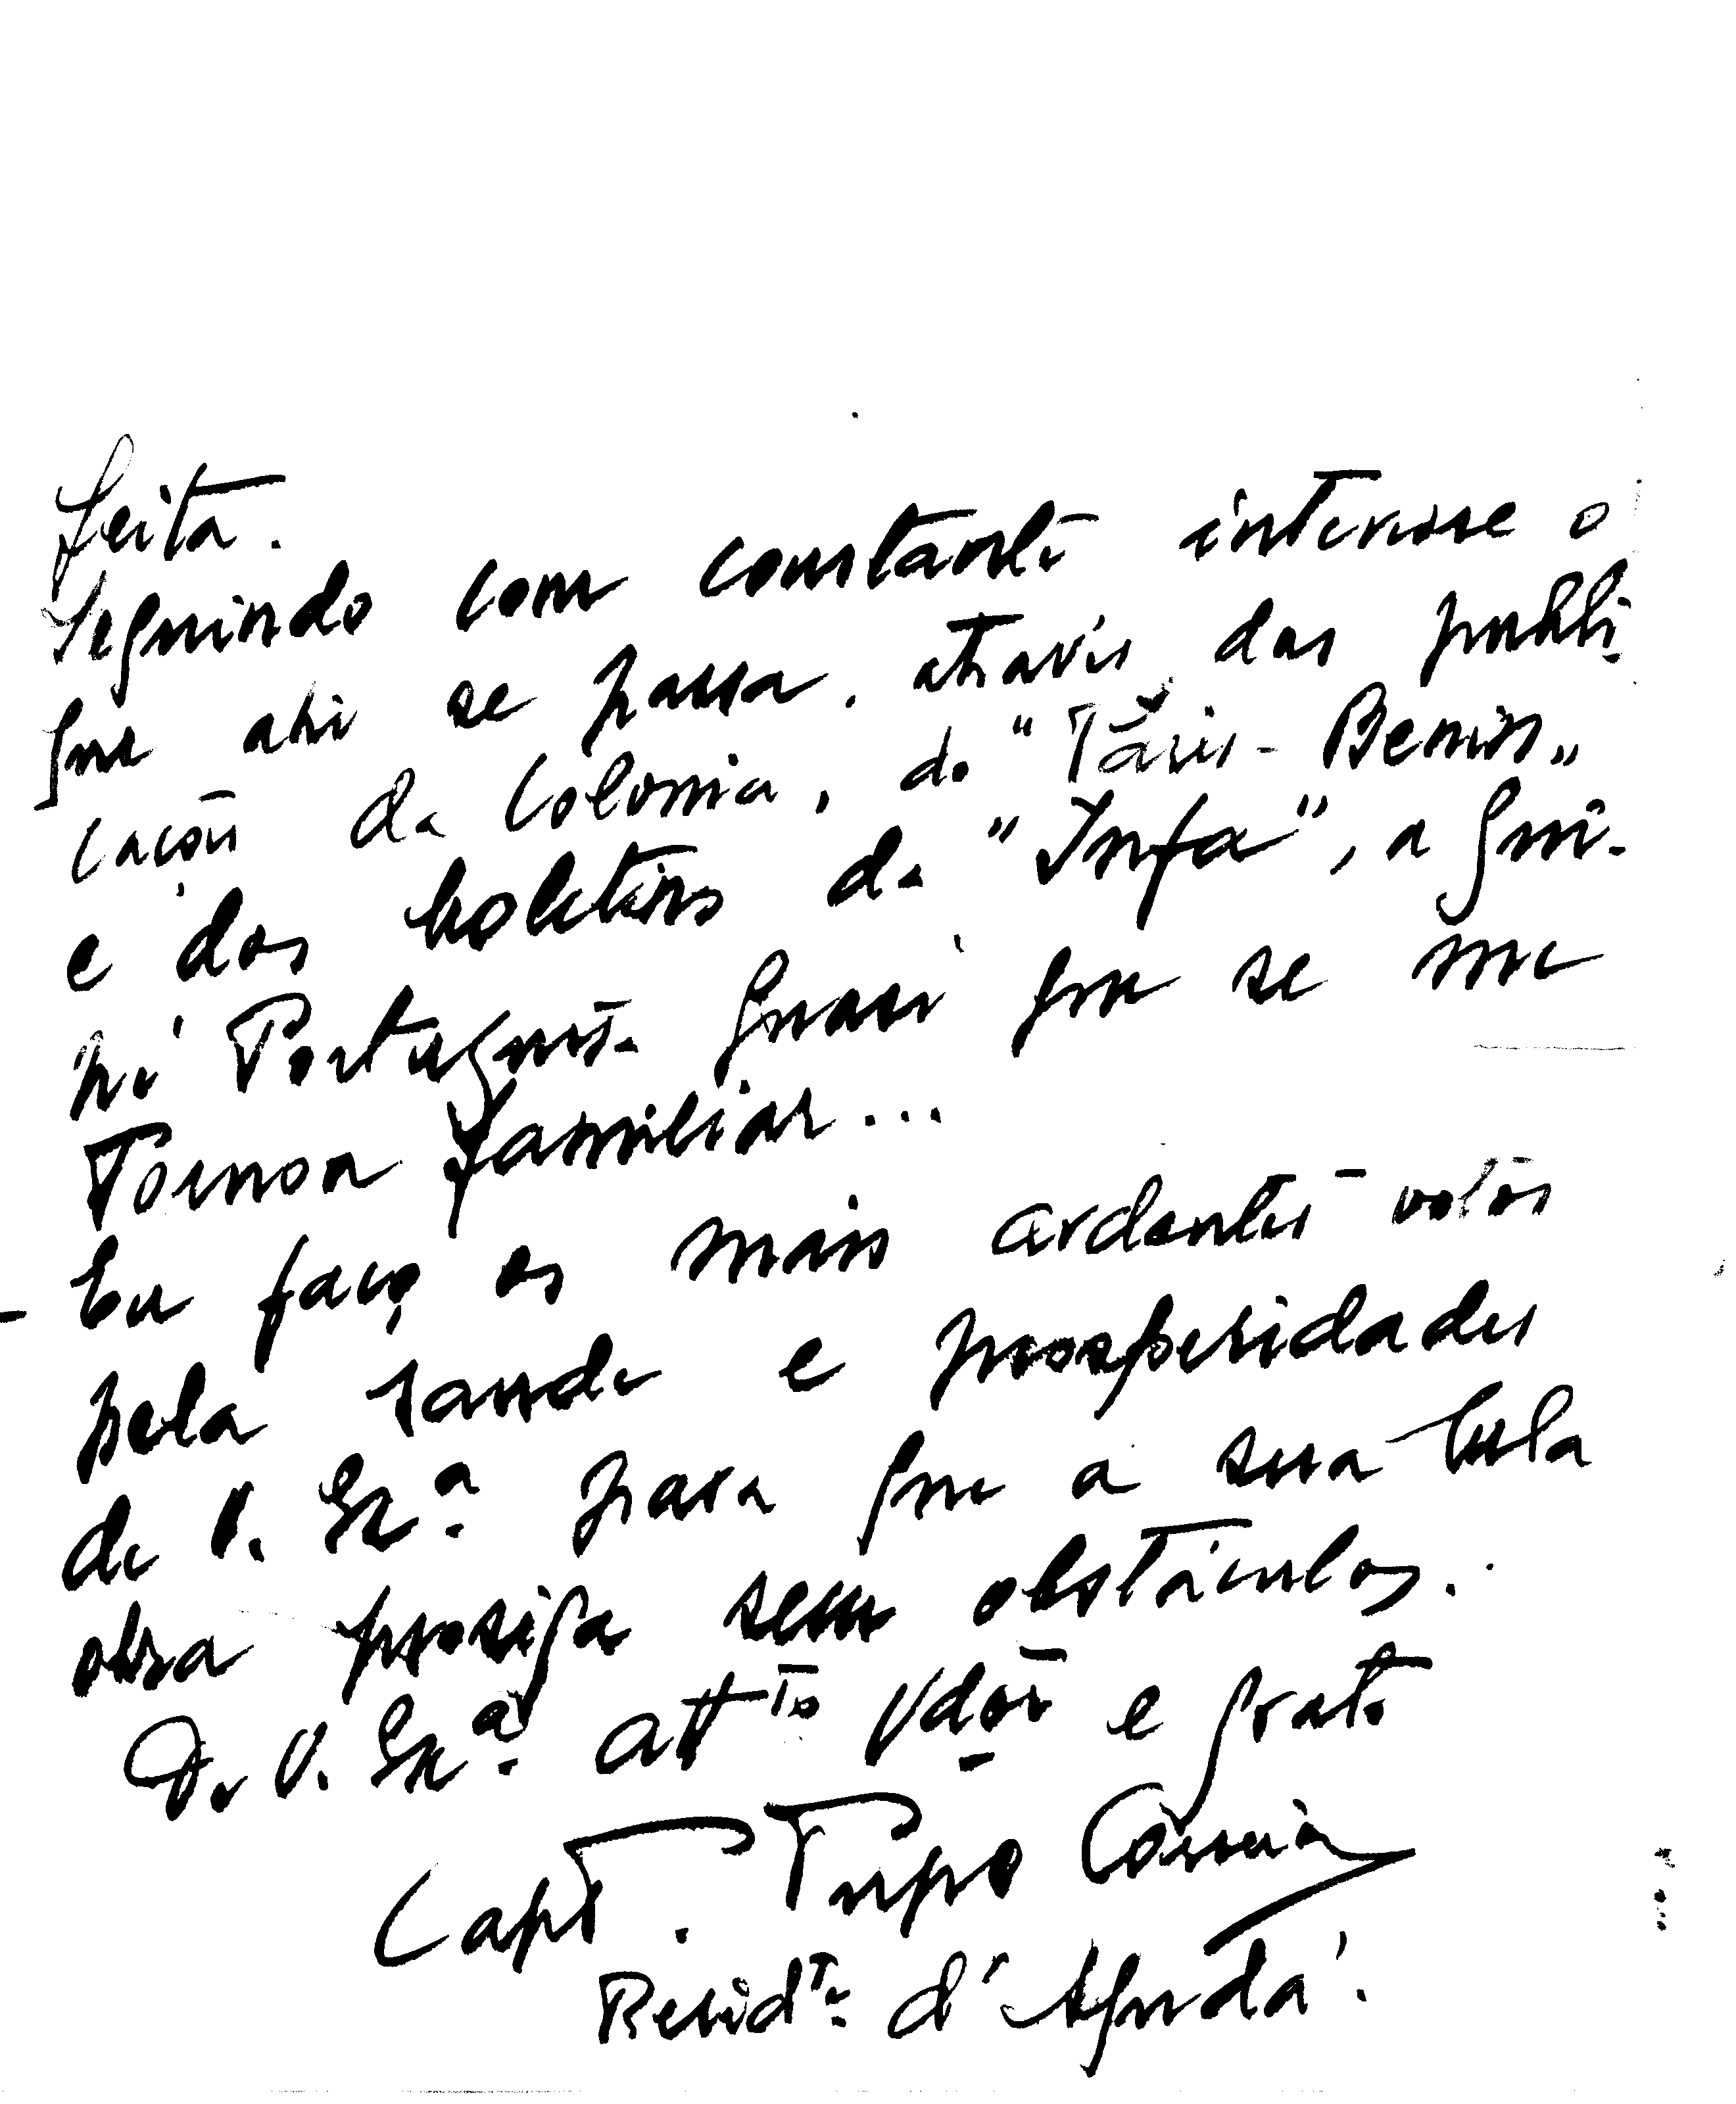 feita.
Seguindo com constante interesse o
que ahi se passa, através das publi-
cações da Colonia, do "Páris-Benin"
e dos boletins da "Infa", a Gui-
né Portuguêsa quasi que se me
tornou familiar...
Eu faço os mais ardentes votos
pela saude e prosperidades
de V. Exª. para que a sua bela
obra prosiga sem obstáculos.
De V. Exª. attᵗᵒ Vdor e grato
Capt. Tupo Correia
Residᵗᵉ d'Ajudá.